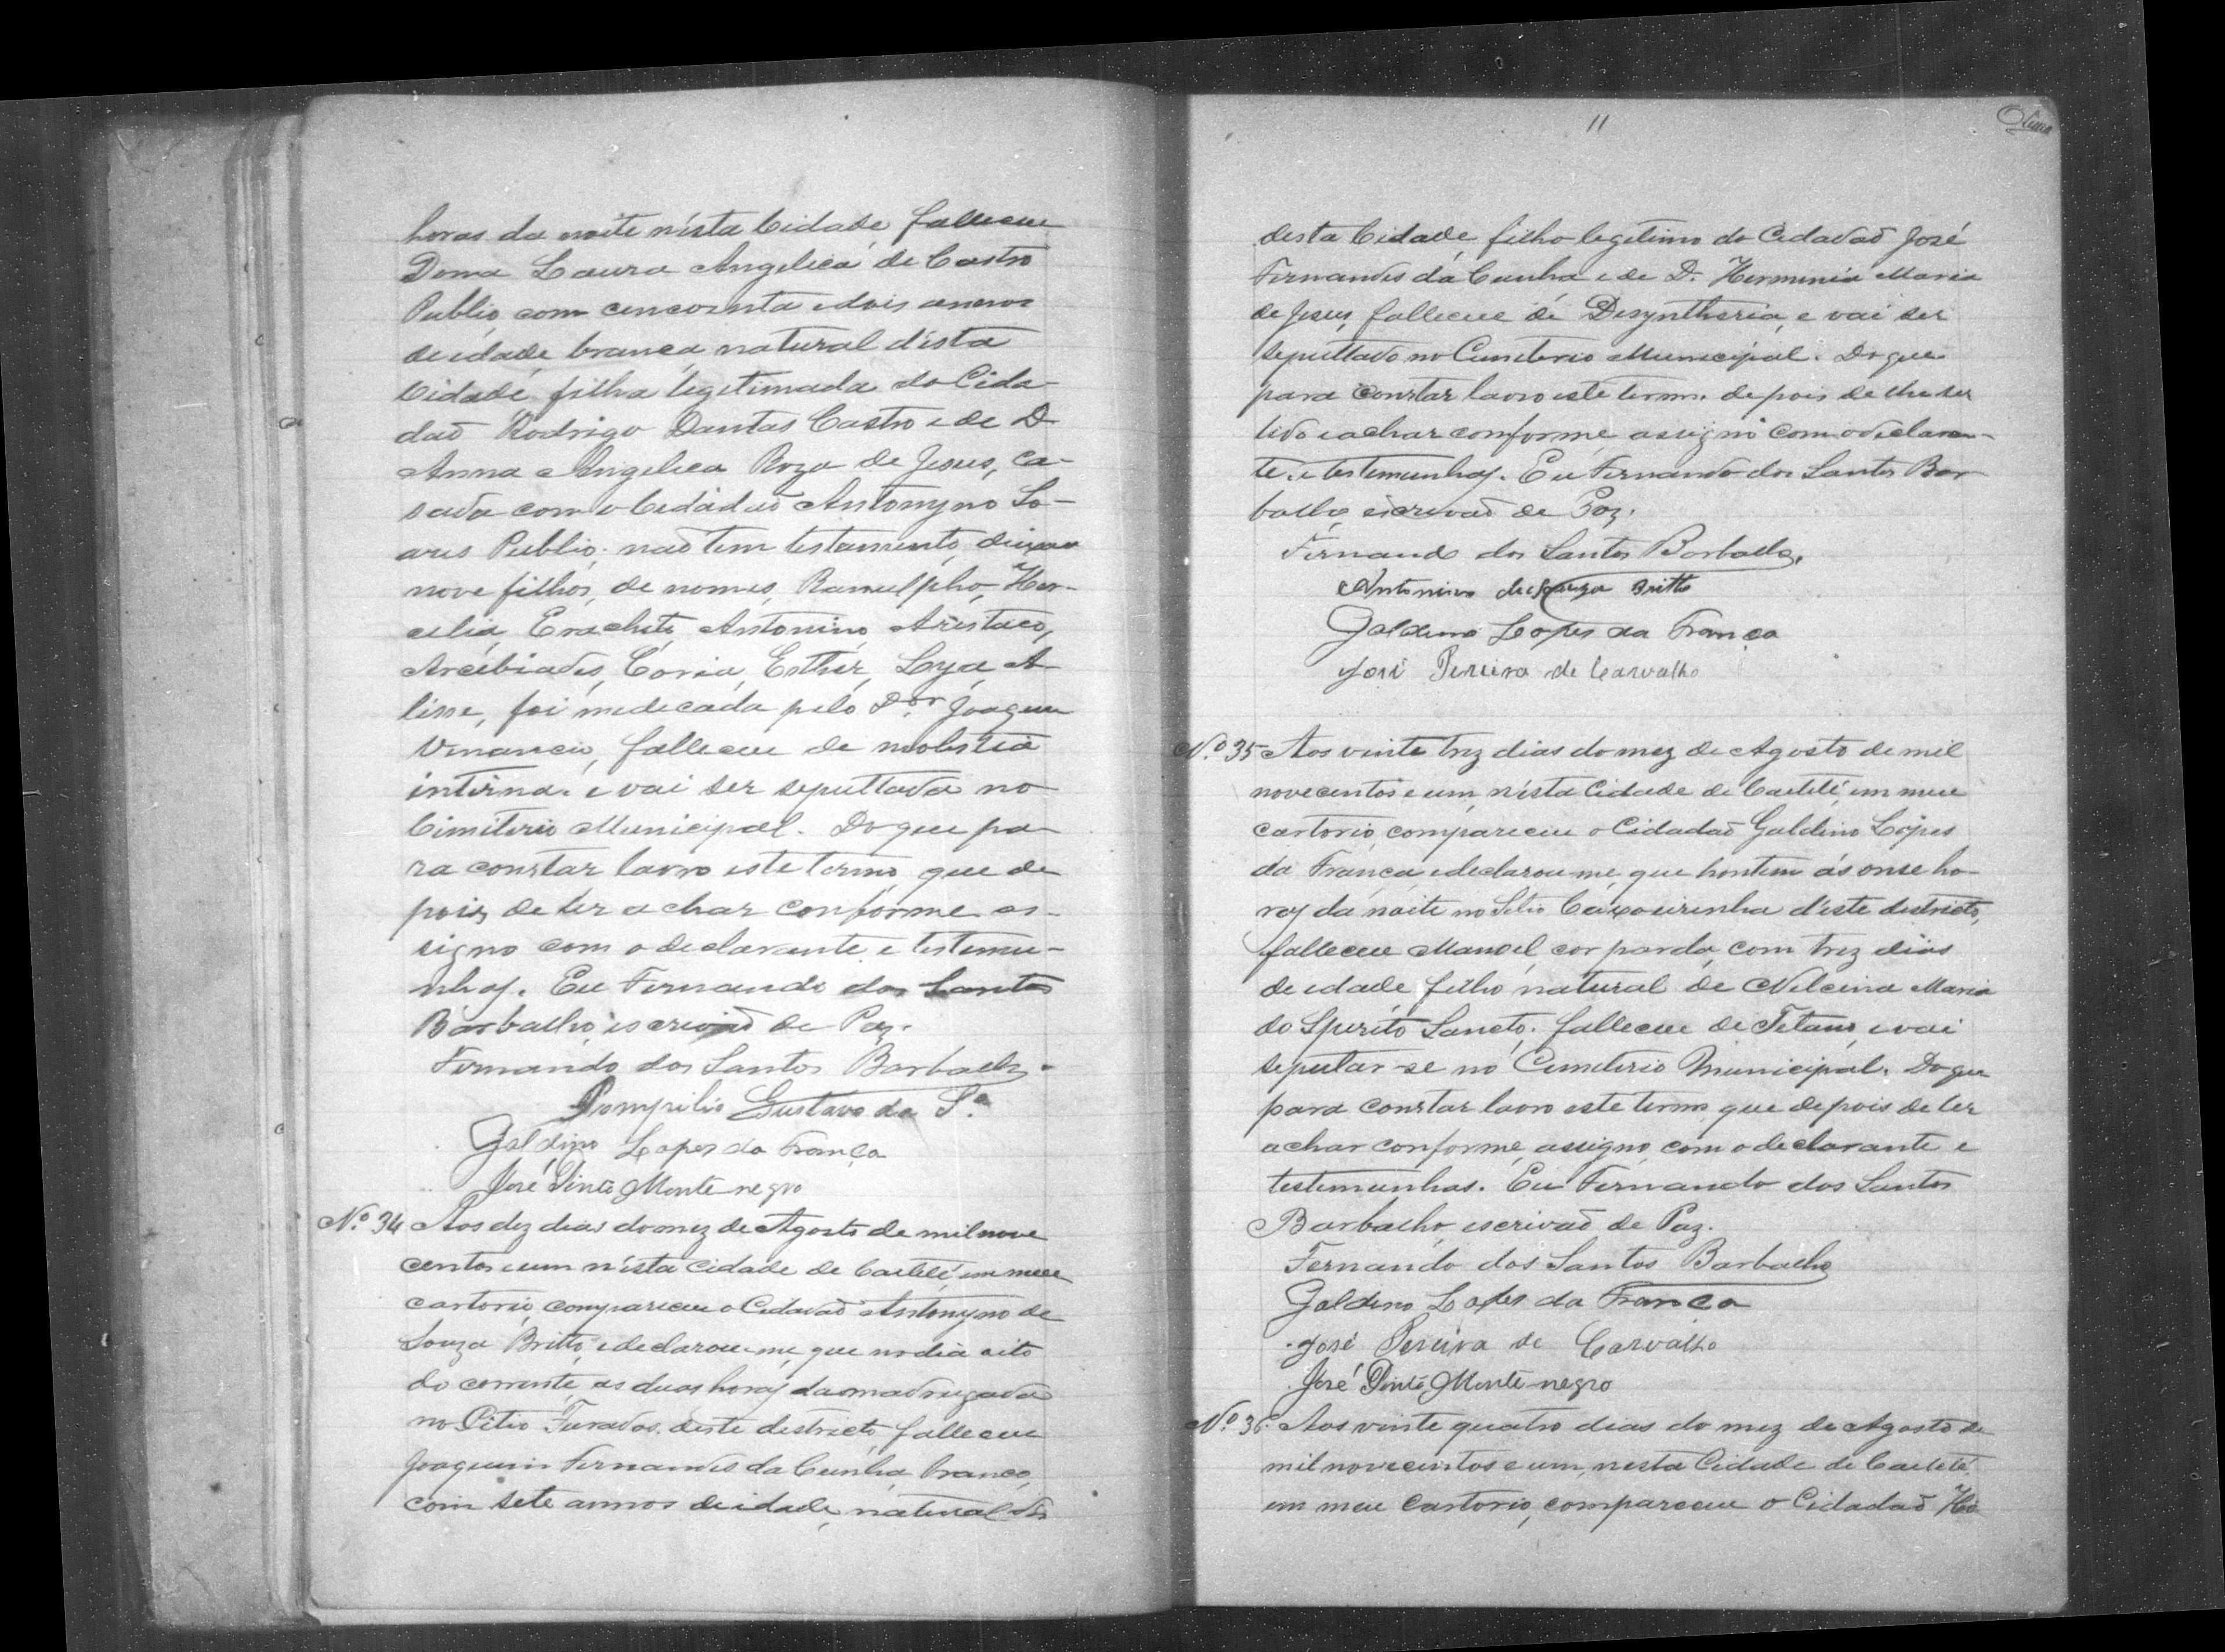 horas da noite n'ésta Cidade, falleceu
Dona Laura Angelica de Castro
Publio, com cincoenta e dois annos
de idade, branca, natural d'ésta
Cidade, filha legitimada do Cida-
daõ Rodrigo Dantas Castro e de D.
Anna Angelica Roza de Jesus, ca-
sada com o Cidadaõ Antonyno So-
ares Publio; naõ tem testamento, deixou
nove filhos, de nomes, Ranulpho, Her-
cilia, Antonino, Aristaco,
Arcebiades, Coria, Esther, Lya, A-
lisse, foi medecada pelo Dor. Joaquim
Venancio, falleceu de molestia
interna. e vai ser sepultada no
Cimiterio Municipal. Do que pa-
ra constar lavro este termo, que de
pois de ler achar conforme as-
signo com o declarante, e testemu-
nhas. Eu Fernando dos Santos
Barbalho, escrivaõ de Paz.
Fernando dos Santos Barbalho.
Pompilio Gustavo da Sa.
Galdino Lopes da França
José Pinto Monte negro
No. 34 Aos dez dias do mez de Agosto de mil nove
centos e um n'ésta Cidade de Caetété, em meu
cartorio, compareceu o Cidadaõ Antonyno de
Souza Britto, e declarou-me, que no dia oito
do corrente, as duas horas da madrugada
no Sitio Furados, deste destricto, falleceu
Joaquim Fernandes da Cunha, branco,
com sete annos de idade, natural
11
Lima
desta Cidade, filho legitimo do Cidadaõ José
Fernandes da Cunha e de D. Herminia Maria
de Jesus, falleceu de Desyntheria, e vai ser
sepultado no Cemiterio Municipal. Do que
para constar lavro este termo. depois de lhe ser
lido e achar conforme, assigno com o declaran-
te. e testemunhas. Eu Fernando dos Santos Bar
balho, escrivaõ de Paz.
Fernando dos Santos Barbalho.
Antonino de Souza Britto
Galdino Lopes da França
José Pereira de Carvalho
No. 35 Aos vinte trez dias do mez de Agosto de mil
novecentos e um, n'ésta Cidade de Caetété, em meu
cartorio, compareceu o Cidadaõ Galdino Lopes
da França, e declarou-me, que hontem ás onse ho-
ras da noite no Sitio Caxoeirinha d'éste destricto,
falleceu Manoel, cor parda, com trez dias
de idade, filho natural de Nelcina Maria
do Spirito Sancto, falleceu de Tetano, e vai
sepultar-se no Cemiterio Municipal. Do que
para constar lavro este termo, que depois de ler
achar conforme, assigno, com o declarante e
testemunhas. Eu Fernando dos Santos
Barbalho, escrivaõ de Paz.
Fernando dos Santos Barbalho
Galdino Lopes da França
José Pereira de Carvalho
José Pinto Monte negro
No. 36 Aos vinte quatro dias do mez de Agosto de
mil novecentos e um, nesta Cidade de Caetété,
em meu Cartorio, compareceu o Cidadaõ